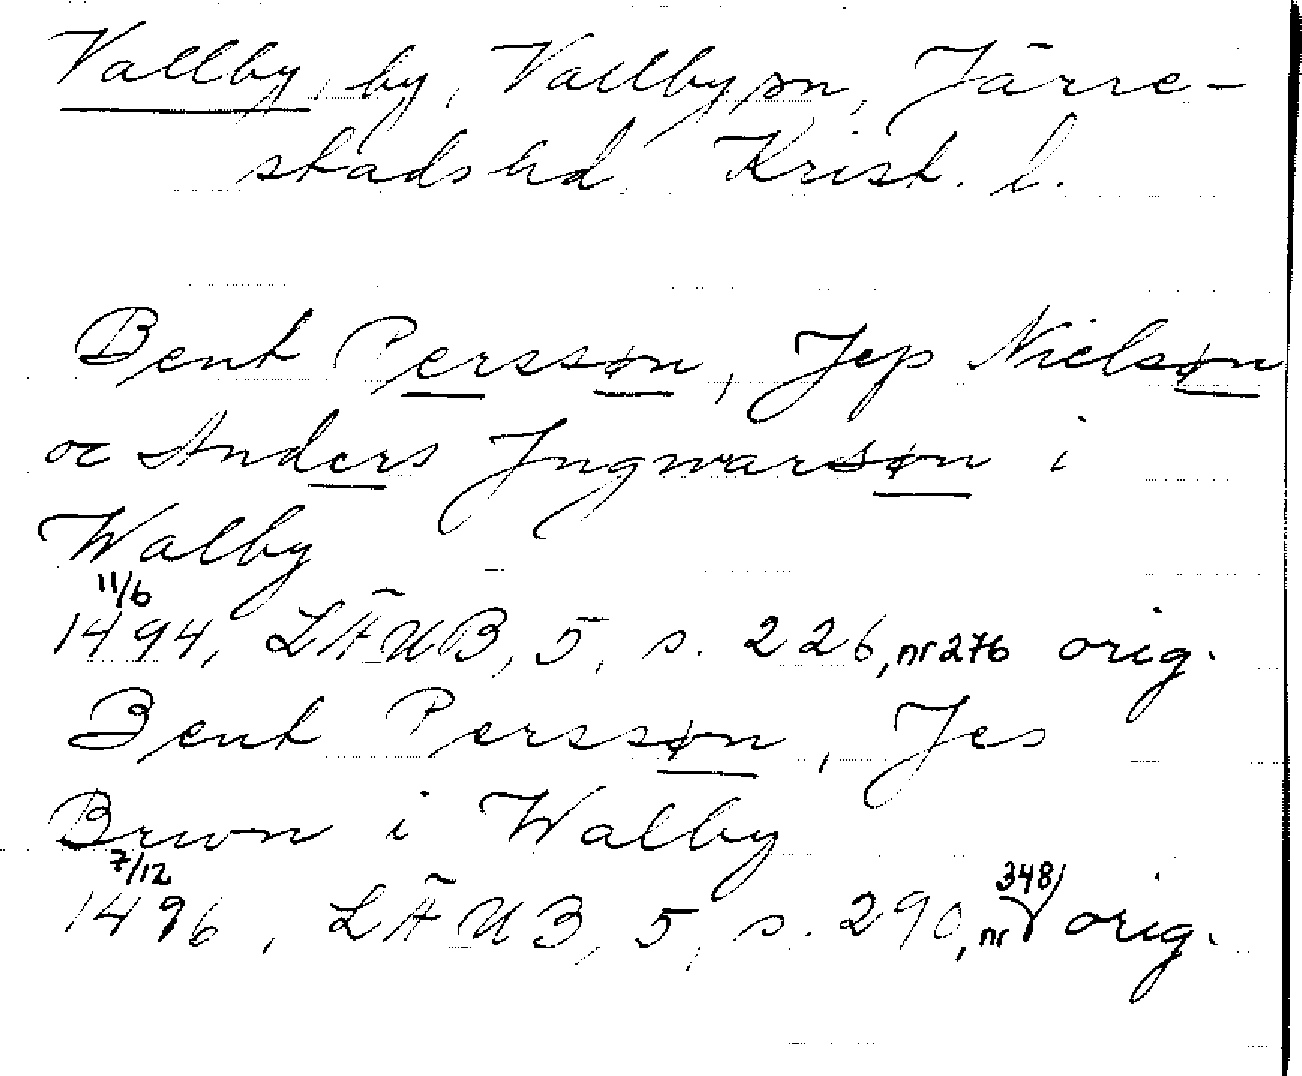 Vallby, by, Vallby sn, Järre-
stads hd. Krist. l.
Bent Perssøn, Jep Nielsøn
oc Anders Jngwarsøn i
Walby
11/6
1494, LÄUB, 5, s. 226, nr 276 orig.
Bent Perssøn, Jes
Brwn i Walby
7/12
1496, LÄUB, 5, s. 290, nr 348 orig.